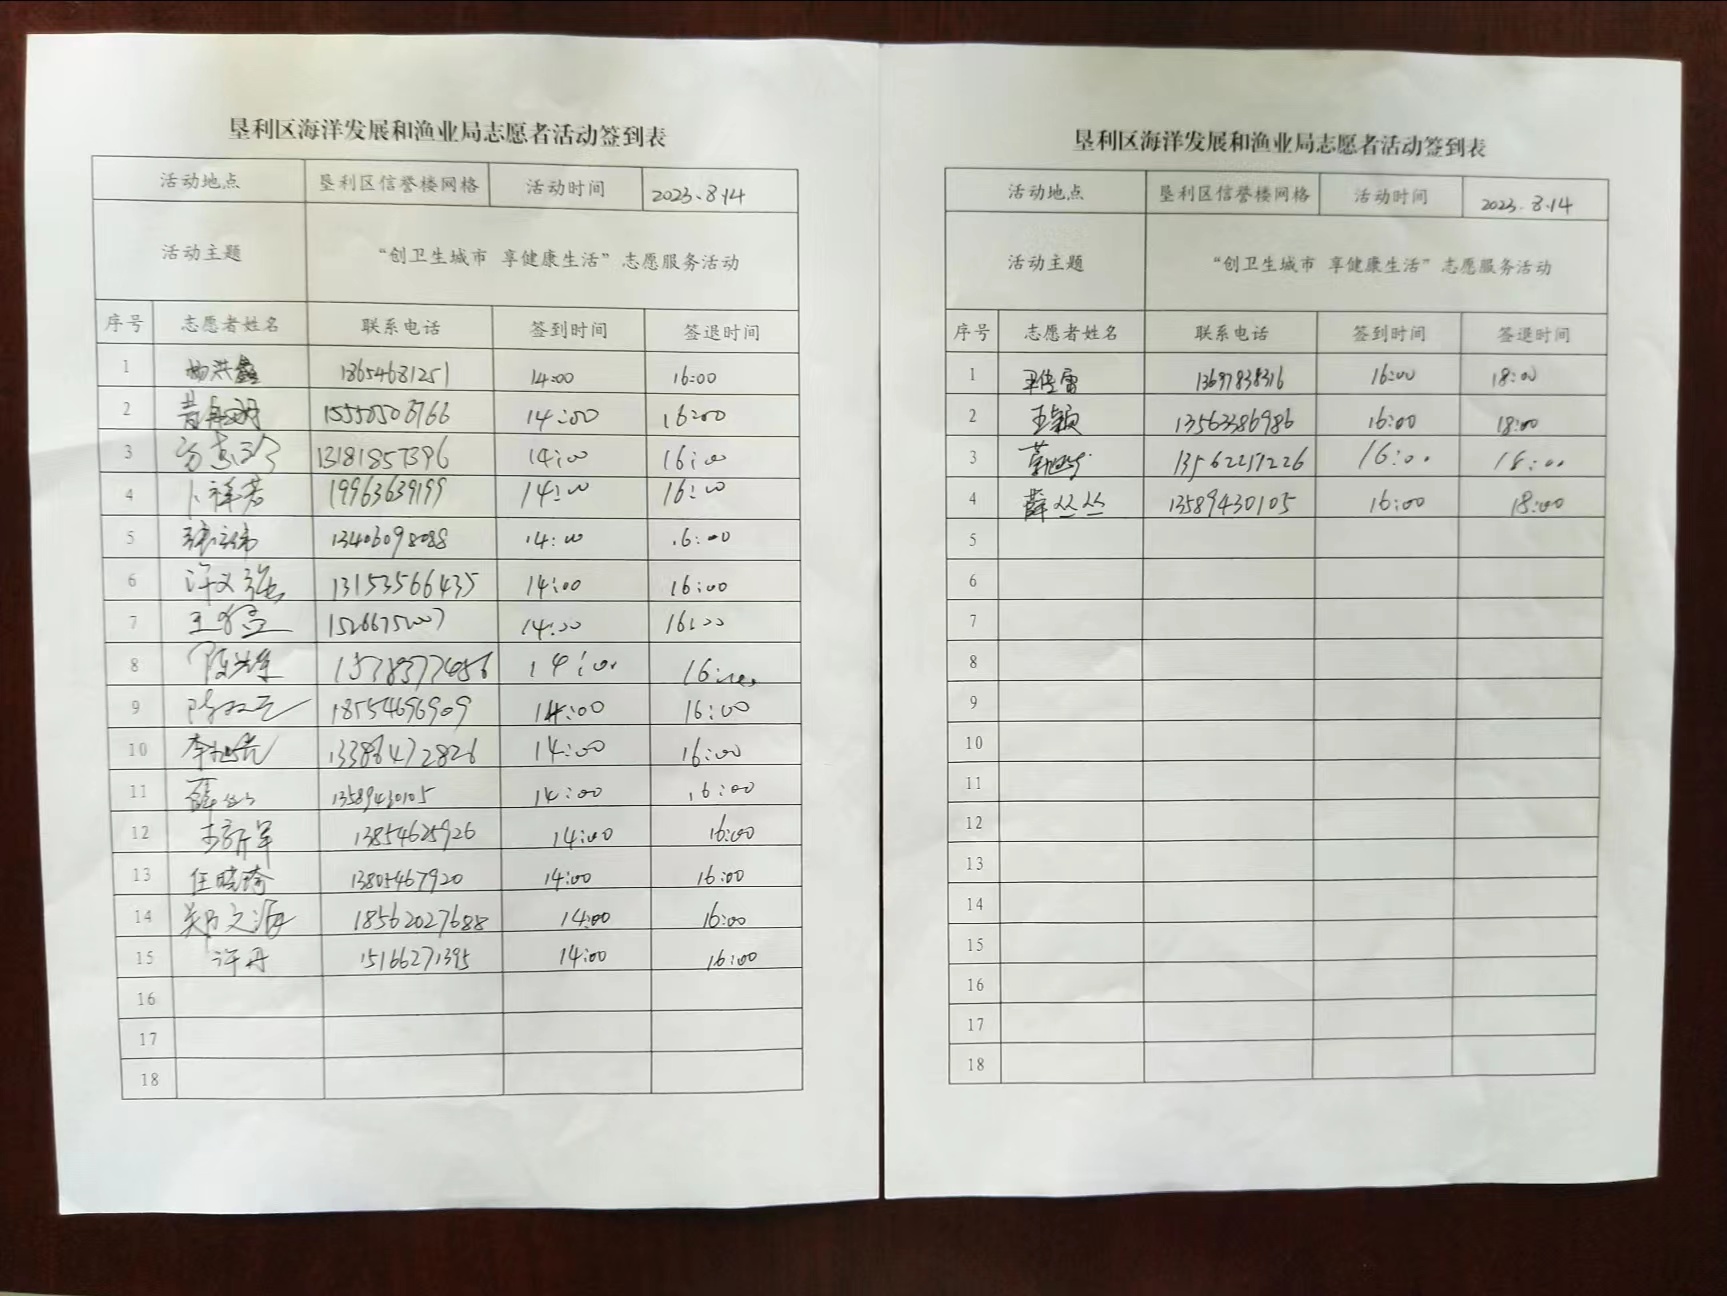 垦利区海洋发展和渔业局志愿者活动签到表
活动地点 垦利区信誉楼网格 活动时间 2023.8.14
活动主题 “创卫生城市 享健康生活”志愿服务活动
序号 志愿者姓名 联系电话 签到时间 签退时间
1 13654681251 14:00 16:00
2 14:00 16:00
3 13181857396 14:00 16:00
4 卜祥芳 19963639199 14:00 16:00
5 13406098088 14:00 16:00
6 许文强 13153566435 14:00 16:00
7 14:00 16:00
8 14:00 16:00
9 18554696909 14:00 16:00
10 13386472826 14:00 16:00
11 薛丛丛 13589430105 14:00 16:00
12 王新军 13854625926 14:00 16:00
13 任晓琦 13805467920 14:00 16:00
14 郑文海 18562027688 14:00 16:00
15 许丹 15166271395 14:00 16:00
16
17
18
垦利区海洋发展和渔业局志愿者活动签到表
活动地点 垦利区信誉楼网格 活动时间 2023.8.14
活动主题 “创卫生城市 享健康生活”志愿服务活动
序号 志愿者姓名 联系电话 签到时间 签退时间
1 13697838316 16:00 18:00
2 王颖 13563386986 16:00 18:00
3 13562251226 16:00 18:00
4 薛丛丛 13589430105 16:00 18:00
5
6
7
8
9
10
11
12
13
14
15
16
17
18